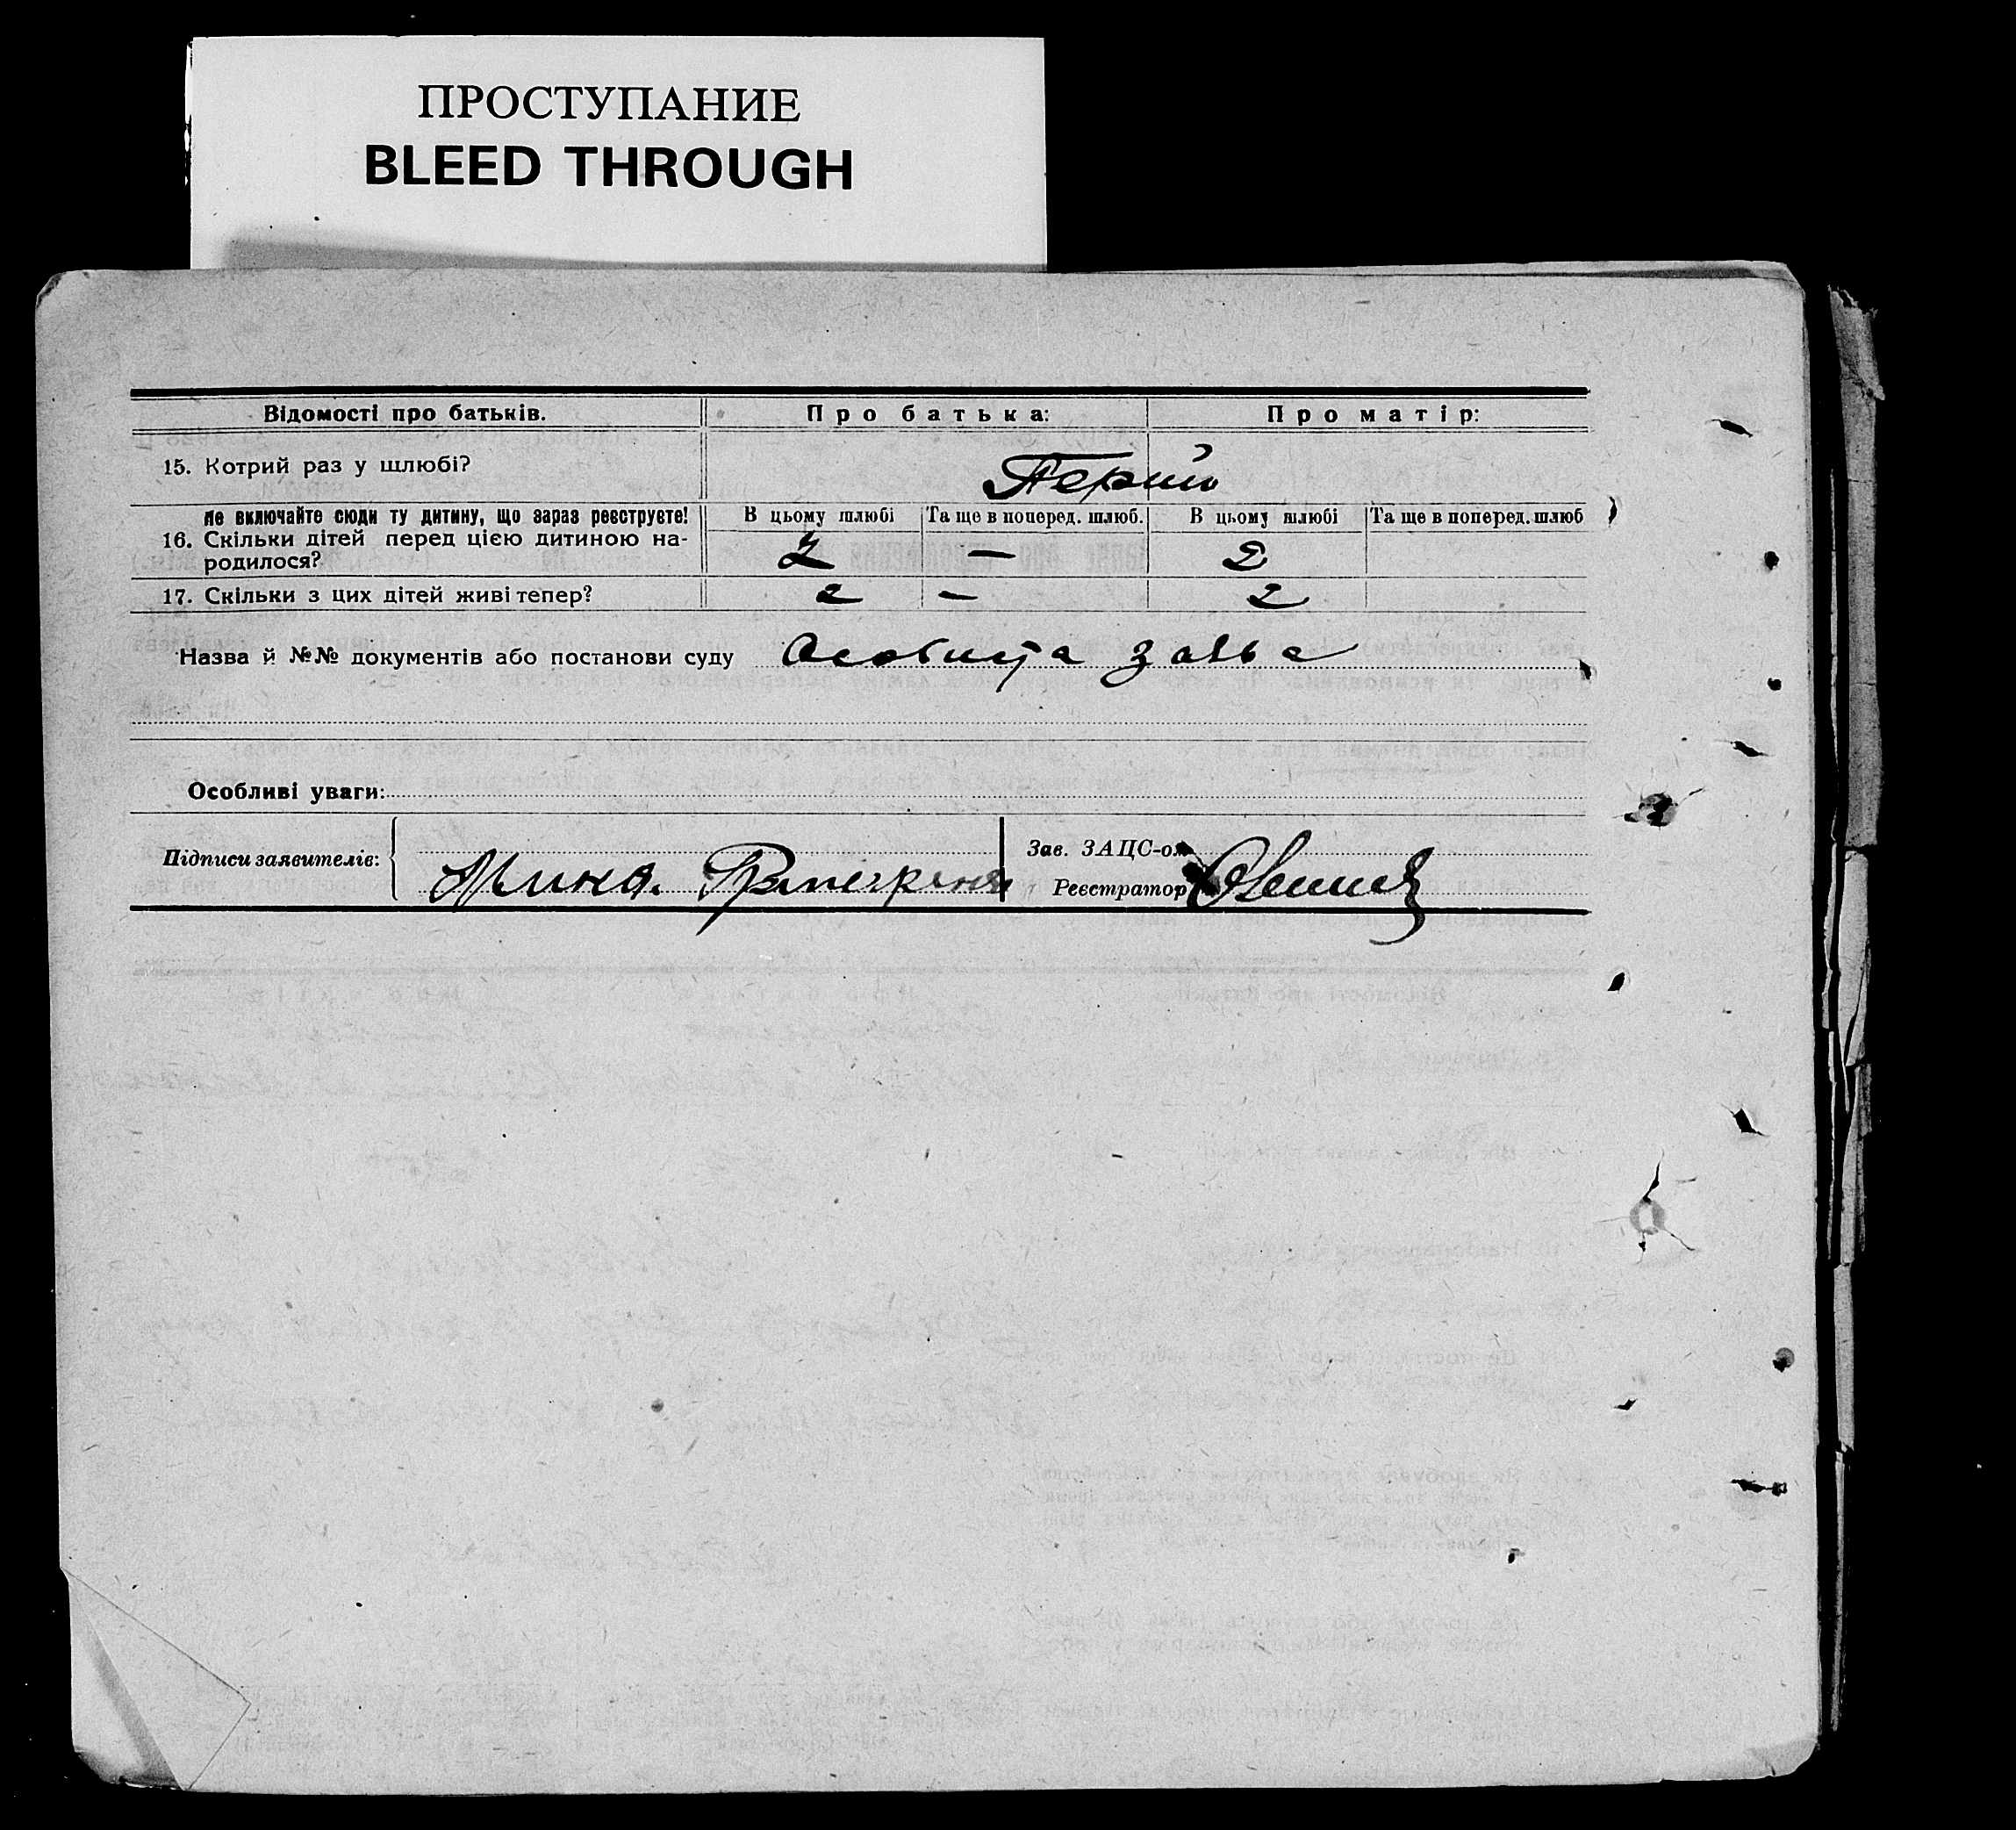 ПРОСТУПАНИЕ
BLEED THROUGH
Відомості про батьків. Про батька: Про матір:
15. Котрий раз у шлюбі?
Не включайте сюди ту дитину, що зараз реєструєте! В цьому шлюбі Та ще в поперед. шлюб. В цьому шлюбі Та ще в поперед. шлюб
16. Скільки дітей перед цією дитиною на-
родилося? 2 — 2
17. Скільки з цих дітей живі тепер? 2 — 2
Назва й №№ документів або постанови суду Особиста заява
Особливі уваги:
Підписи заявителів: Зав. ЗАЦС-ом
Реєстратор